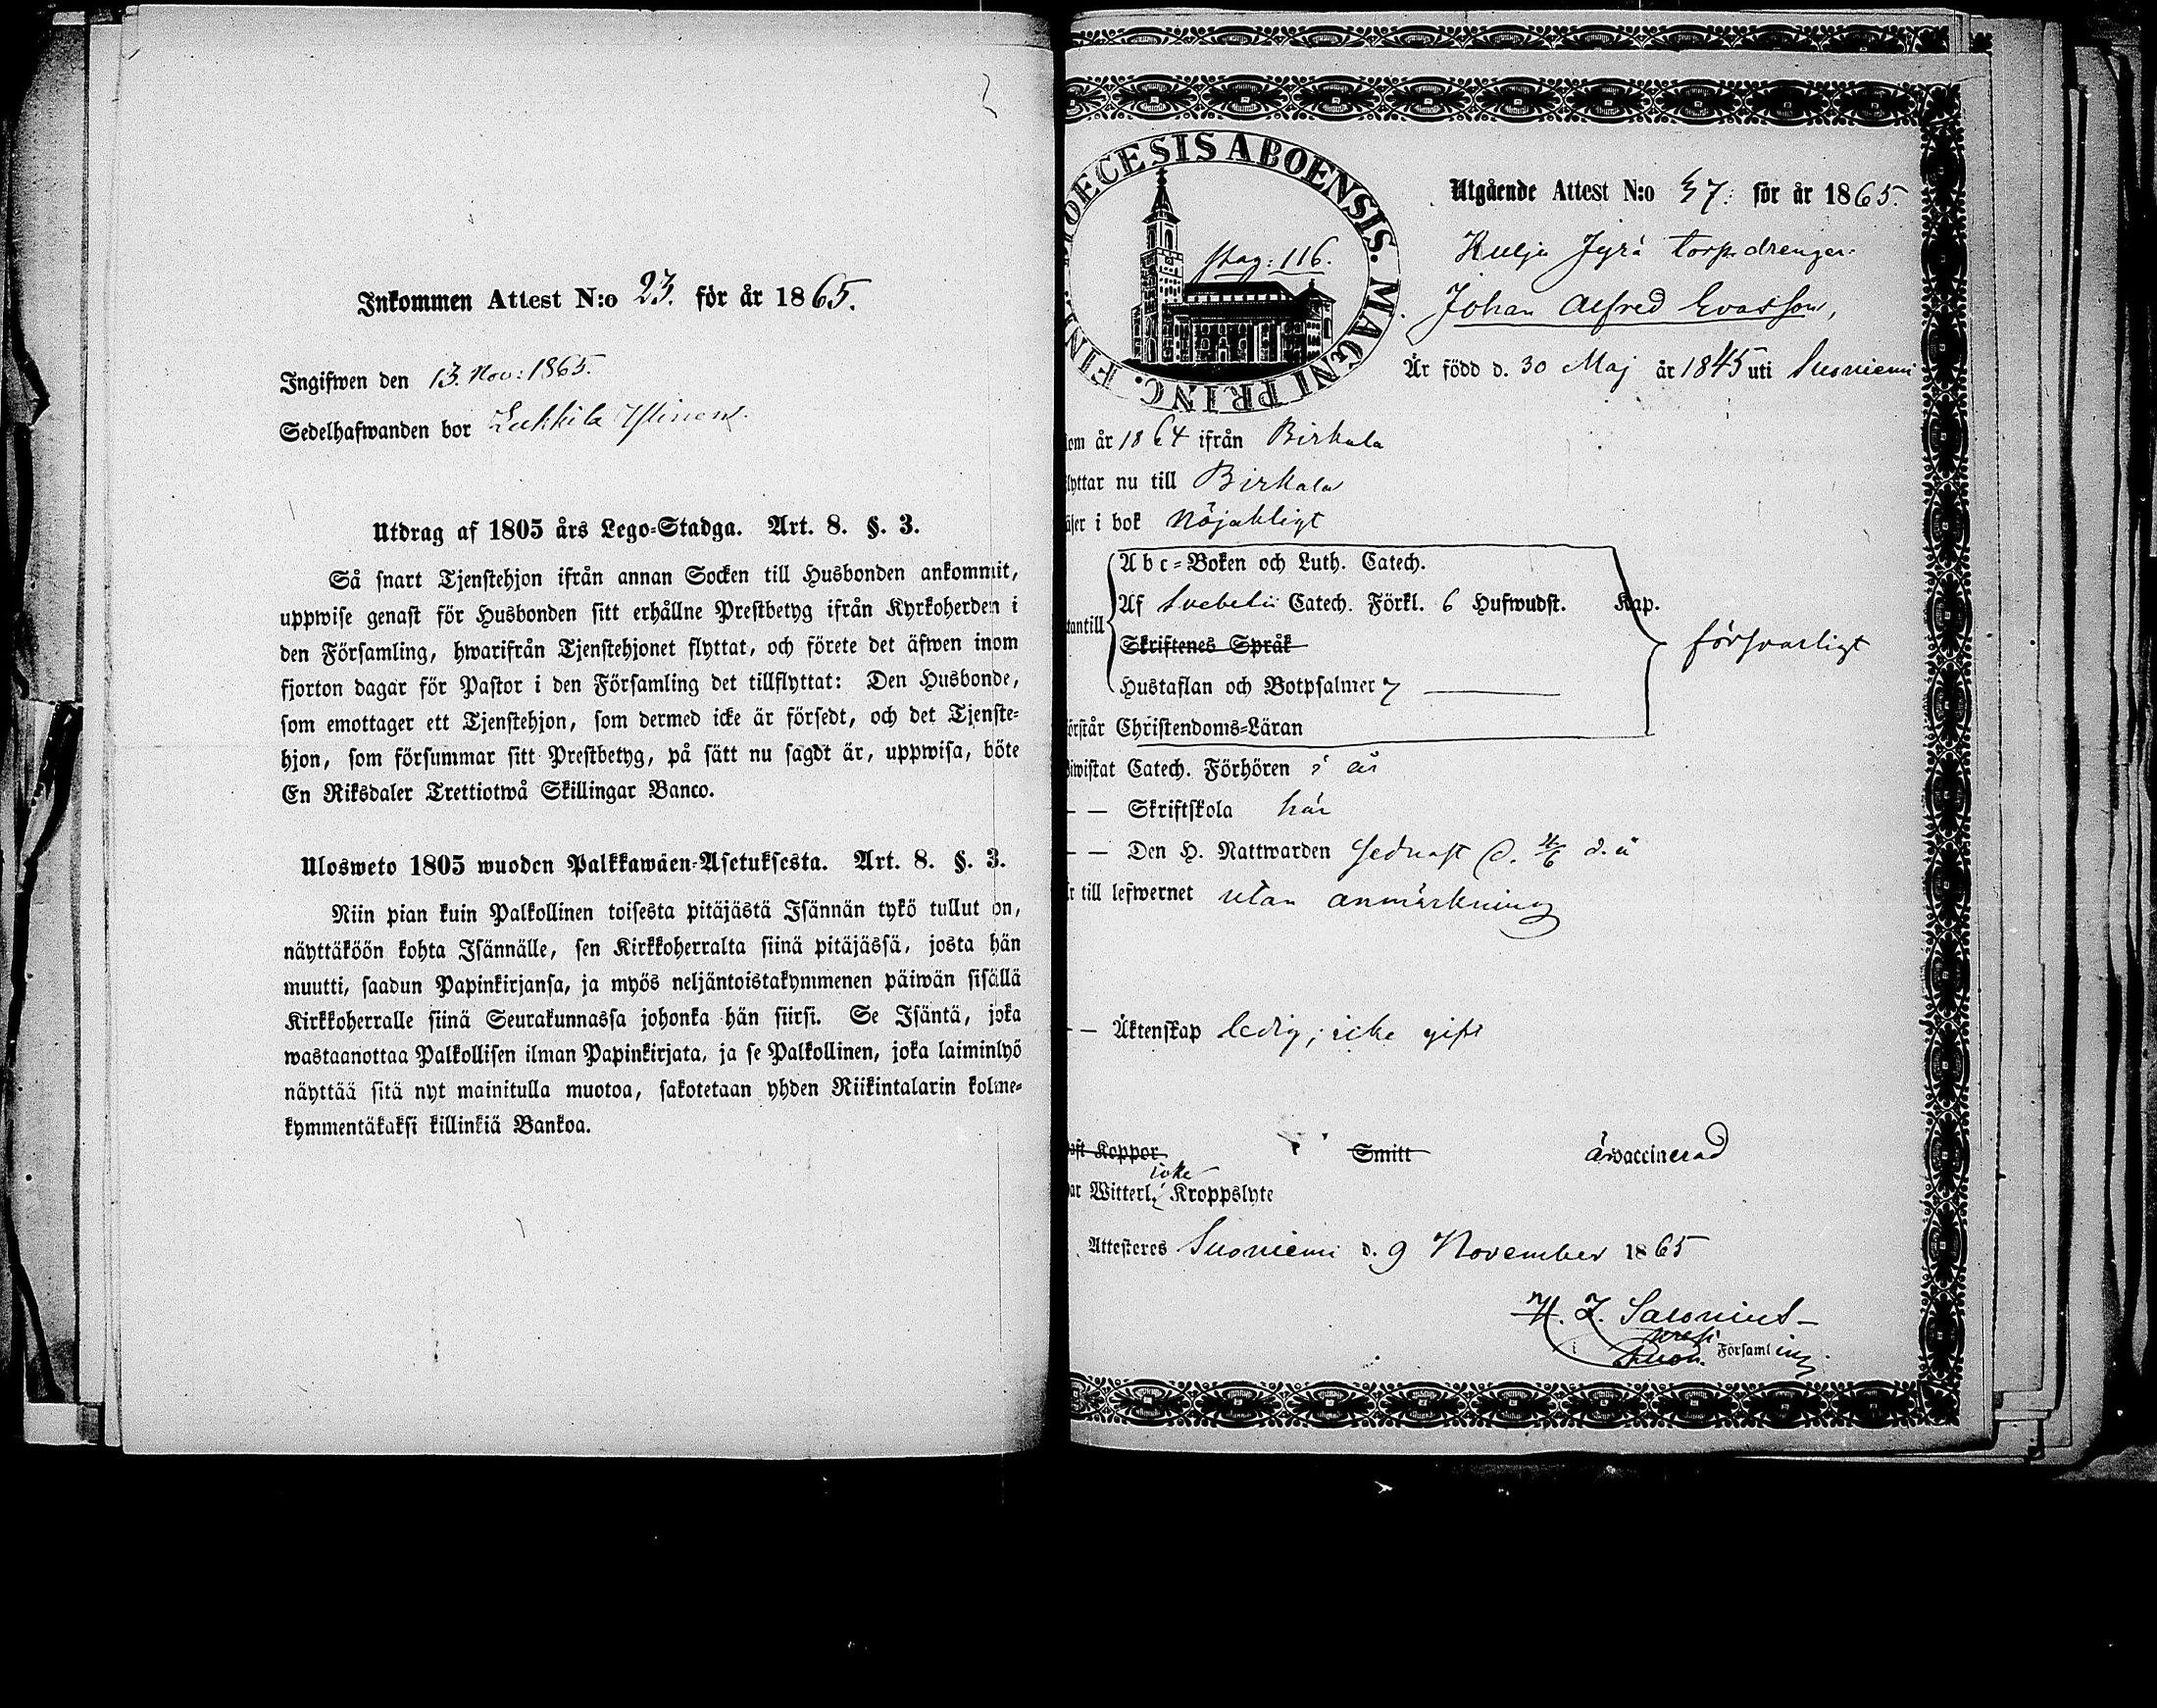 Inkommen Attest N:o 23. för år 1865.
Ingifwen den 13. Nov: 1865.
Sedelhafwanden bor Lukkila
Utdrag af 1805 års Lego-Stadga. Art. 8. §. 3.
Så snart Tjenstehjon ifrån annan Socken till Husbonden ankommit,
uppwise genast för Husbonden sitt erhållne Prestbetyg ifrån Kyrkoherden i
den Församling, hwarifrån Tjenstehjonet flyttat, och förete det äfwen inom
fjorton dagar för Pastor i den Församling det tillflyttat: Den Husbonde,
som emottager ett Tjenstehjon, som dermed icke är försedt, och det Tjenste-
hjon, som försummar sitt Prestbetyg, på sätt nu sagdt är, uppwisa, böte
En Riksdaler Trettiotwå Skillingar Banco.
Ulosweto 1805 wuoden Palkkawäen-Asetuksesta. Art. 8. §. 3.
Niin pian kuin Palkollinen toisesta pitäjästä Isännän tykö tullut on,
näyttäköön kohta Isännälle, sen Kirkkoherralta siinä pitäjässä, josta hän
muutti, saadun Papinkirjansa, ja myös neljäntoistakymmenen päiwän sisällä
Kirkkoherralle siinä Seurakunnassa johonka hän siirsi. Se Isäntä, joka
wastaanottaa Palkollisen ilman Papinkirjata, ja se Palkollinen, joka laiminlyö
näyttää sitä nyt mainitulla muotoa, sakotetaan yhden Riikintalarin kolme-
kymmentäkaksi killinkiä Bankoa.
OECESIS ABOENSIS. MAGNI PRINC. FINL.
pag: 116.
Utgående Attest N:o 57: för år 1865.
Kulju Jyrä torp. drengen
Johan Alfred Evasson,
Är född d. 30 Maj år 1845 uti Suoniemi
kom år 1864 ifrån Birkala
flyttar nu till Birkala
läser i bok nöjaktligt
Abc-Boken och Luth. Catech.
Af Svebelii Catech. Förkl. 6 Hufwudst. Kap.
utantill
Skriftenes Språk
försvarligt
Hustaflan och Botpsalmer 7
förstår Christendoms-Läran
Biwistat Catech. Förhören i år
— — Skriftskola här
— — Den H. Nattwarden sednast d. d. å
är till lefwernet utan anmärkning
— — Äktenskap ledig, icke gift
haft Koppor Smitt är vaccinerad
icke
har Witterl. Kroppslyte
Attesteres Suoniemi d. 9 November 1865
H. J. Salonius
Suon. Församling.